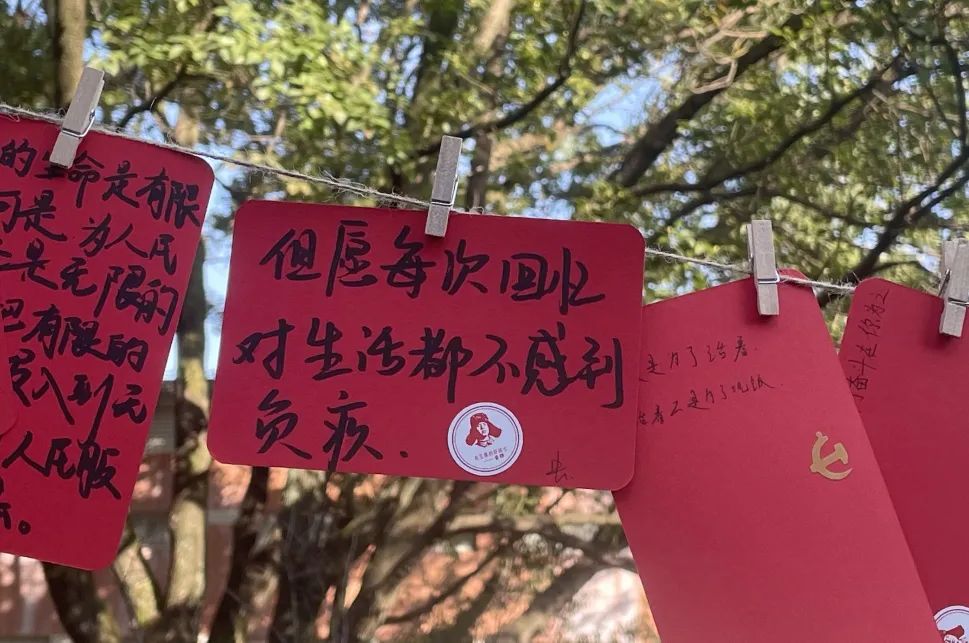 的生命是有限
可是为人民
是无限的
有限的
投入到无
人民服
。
但愿每次回忆
对生活都不感到
负疚.
是为了活着.
着不是为了